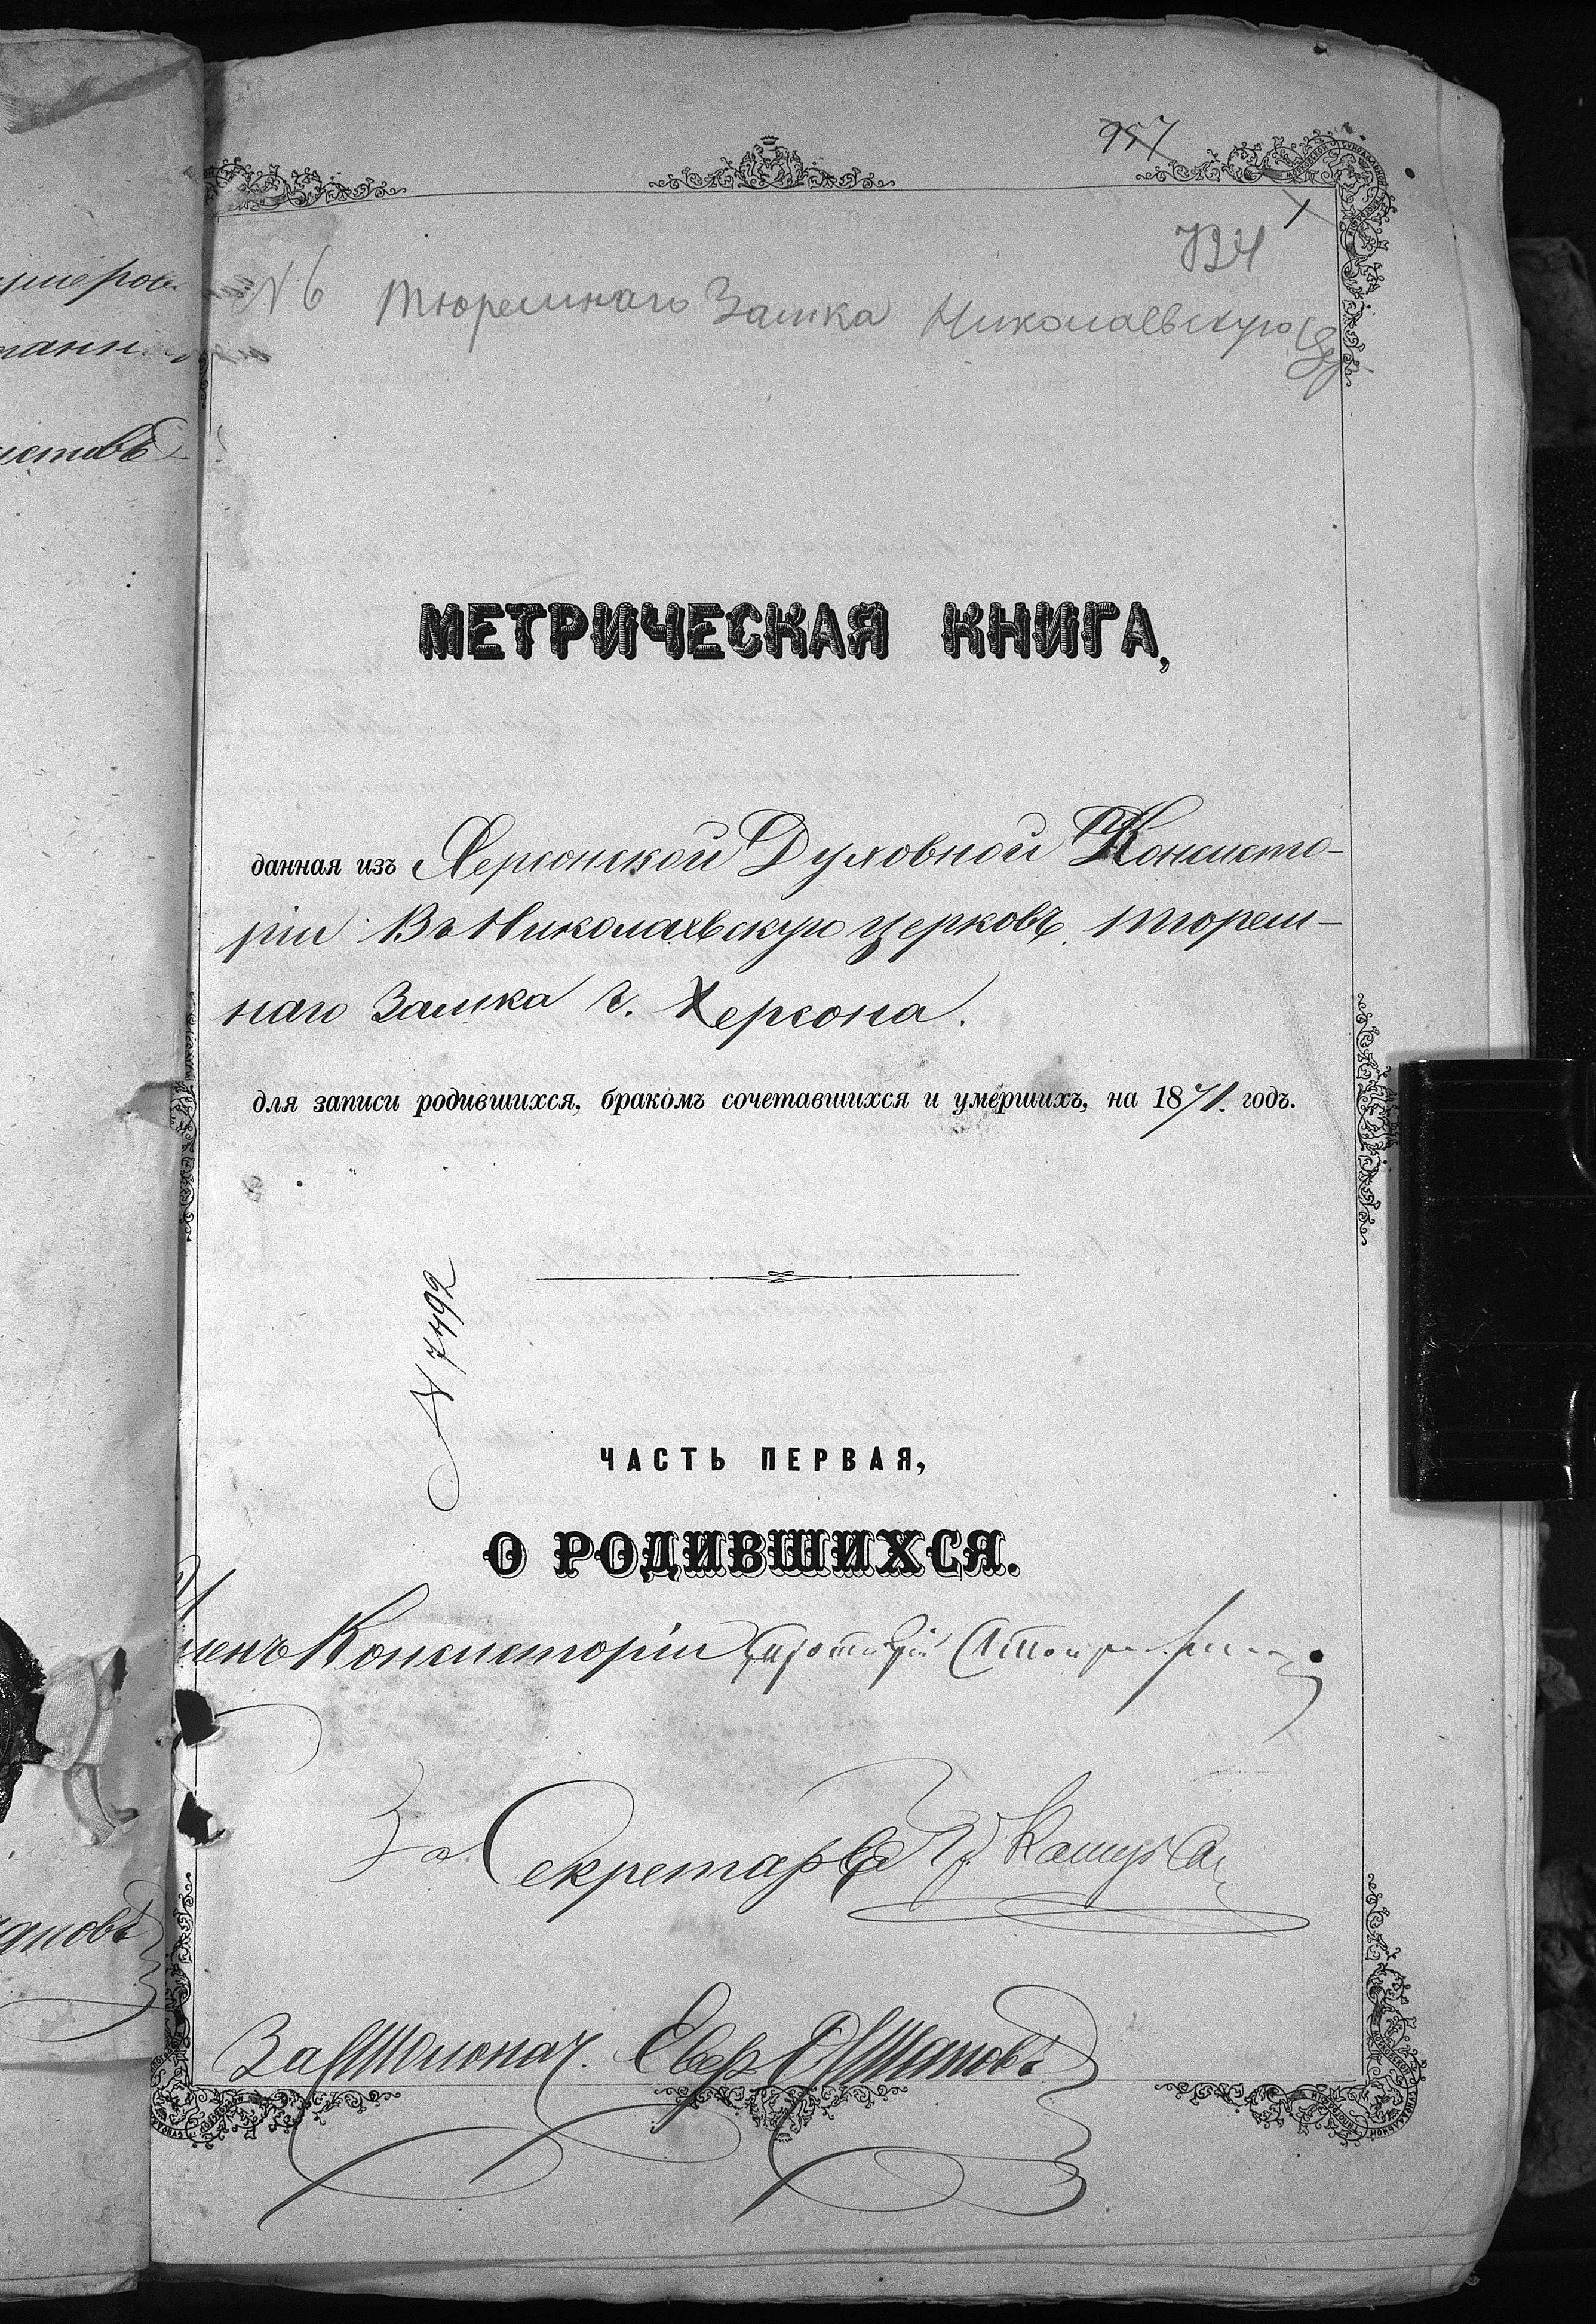 957
724
N 6 Тюремнаго Замка Николаевскую Цер
МЕТРИЧЕСКАЯ КНИГА,
данная изъ Херсонской Духовной Консисто-
ріи Въ Николаевскую церковь, тюрем-
наго Замка г. Херсона.
для записи родившихся, бракомъ сочетавшихся и умершихъ, на 1871. годъ.
N 7492
ЧАСТЬ ПЕРВАЯ,
О РОДИВШИХСЯ.
Членъ Консисторіи Протоіерей
За Секретаря
За Столонач.